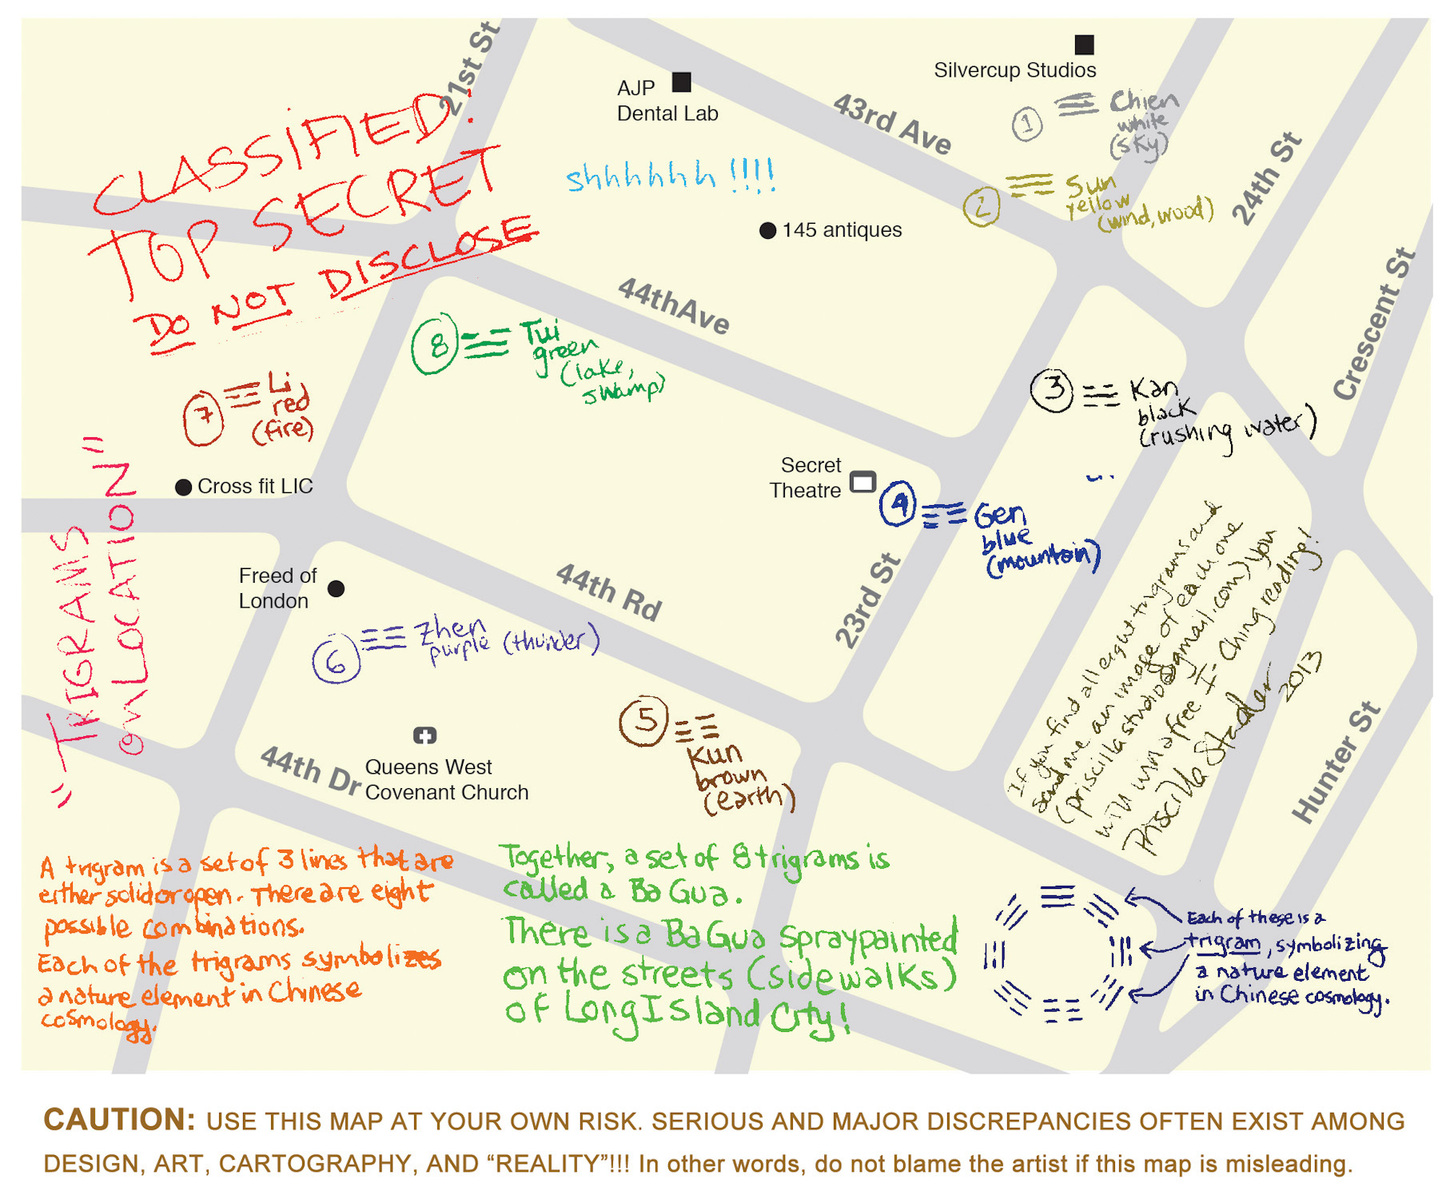 CLASSIFIED!
TOP SECRET
DO NOT DISCLOSE
21st St
AJP
Dental Lab
shhhhhh !!!!
43rd Ave
Silvercup Studios
1 Chien
white
(sky)
2 Sun
yellow
(wind, wood)
24th St
145 antiques
44thAve
Crescent St
8 Tui
green
(lake,
swamp)
7 Li
red
(fire)
3 Kan
black
(rushing water)
Cross fit LIC
Secret
Theatre
4 Gen
blue
(mountain)
"TRIGRAMS
on LOCATION"
Freed of
London
44th Rd
23rd St
6 Zhen
purple (thunder)
5 Kun
brown
(earth)
Queens West
Covenant Church
44th Dr
If you find all eight trigrams and
send me an image of each one
(priscillastudio@gmail.com) you
will win a free I-Ching reading!
Priscilla Stadler 2013
Hunter St
A trigram is a set of 3 lines that are
either solid or open. There are eight
possible combinations.
Each of the trigrams symbolizes
a nature element in Chinese
cosmology.
Together, a set of 8 trigrams is
called a Ba Gua.
There is a Ba Gua spraypainted
on the streets (sidewalks)
of Long Island City!
Each of these is a
trigram, symbolizing
a nature element
in Chinese cosmology.
CAUTION: USE THIS MAP AT YOUR OWN RISK. SERIOUS AND MAJOR DISCREPANCIES OFTEN EXIST AMONG
DESIGN, ART, CARTOGRAPHY, AND “REALITY”!!! In other words, do not blame the artist if this map is misleading.